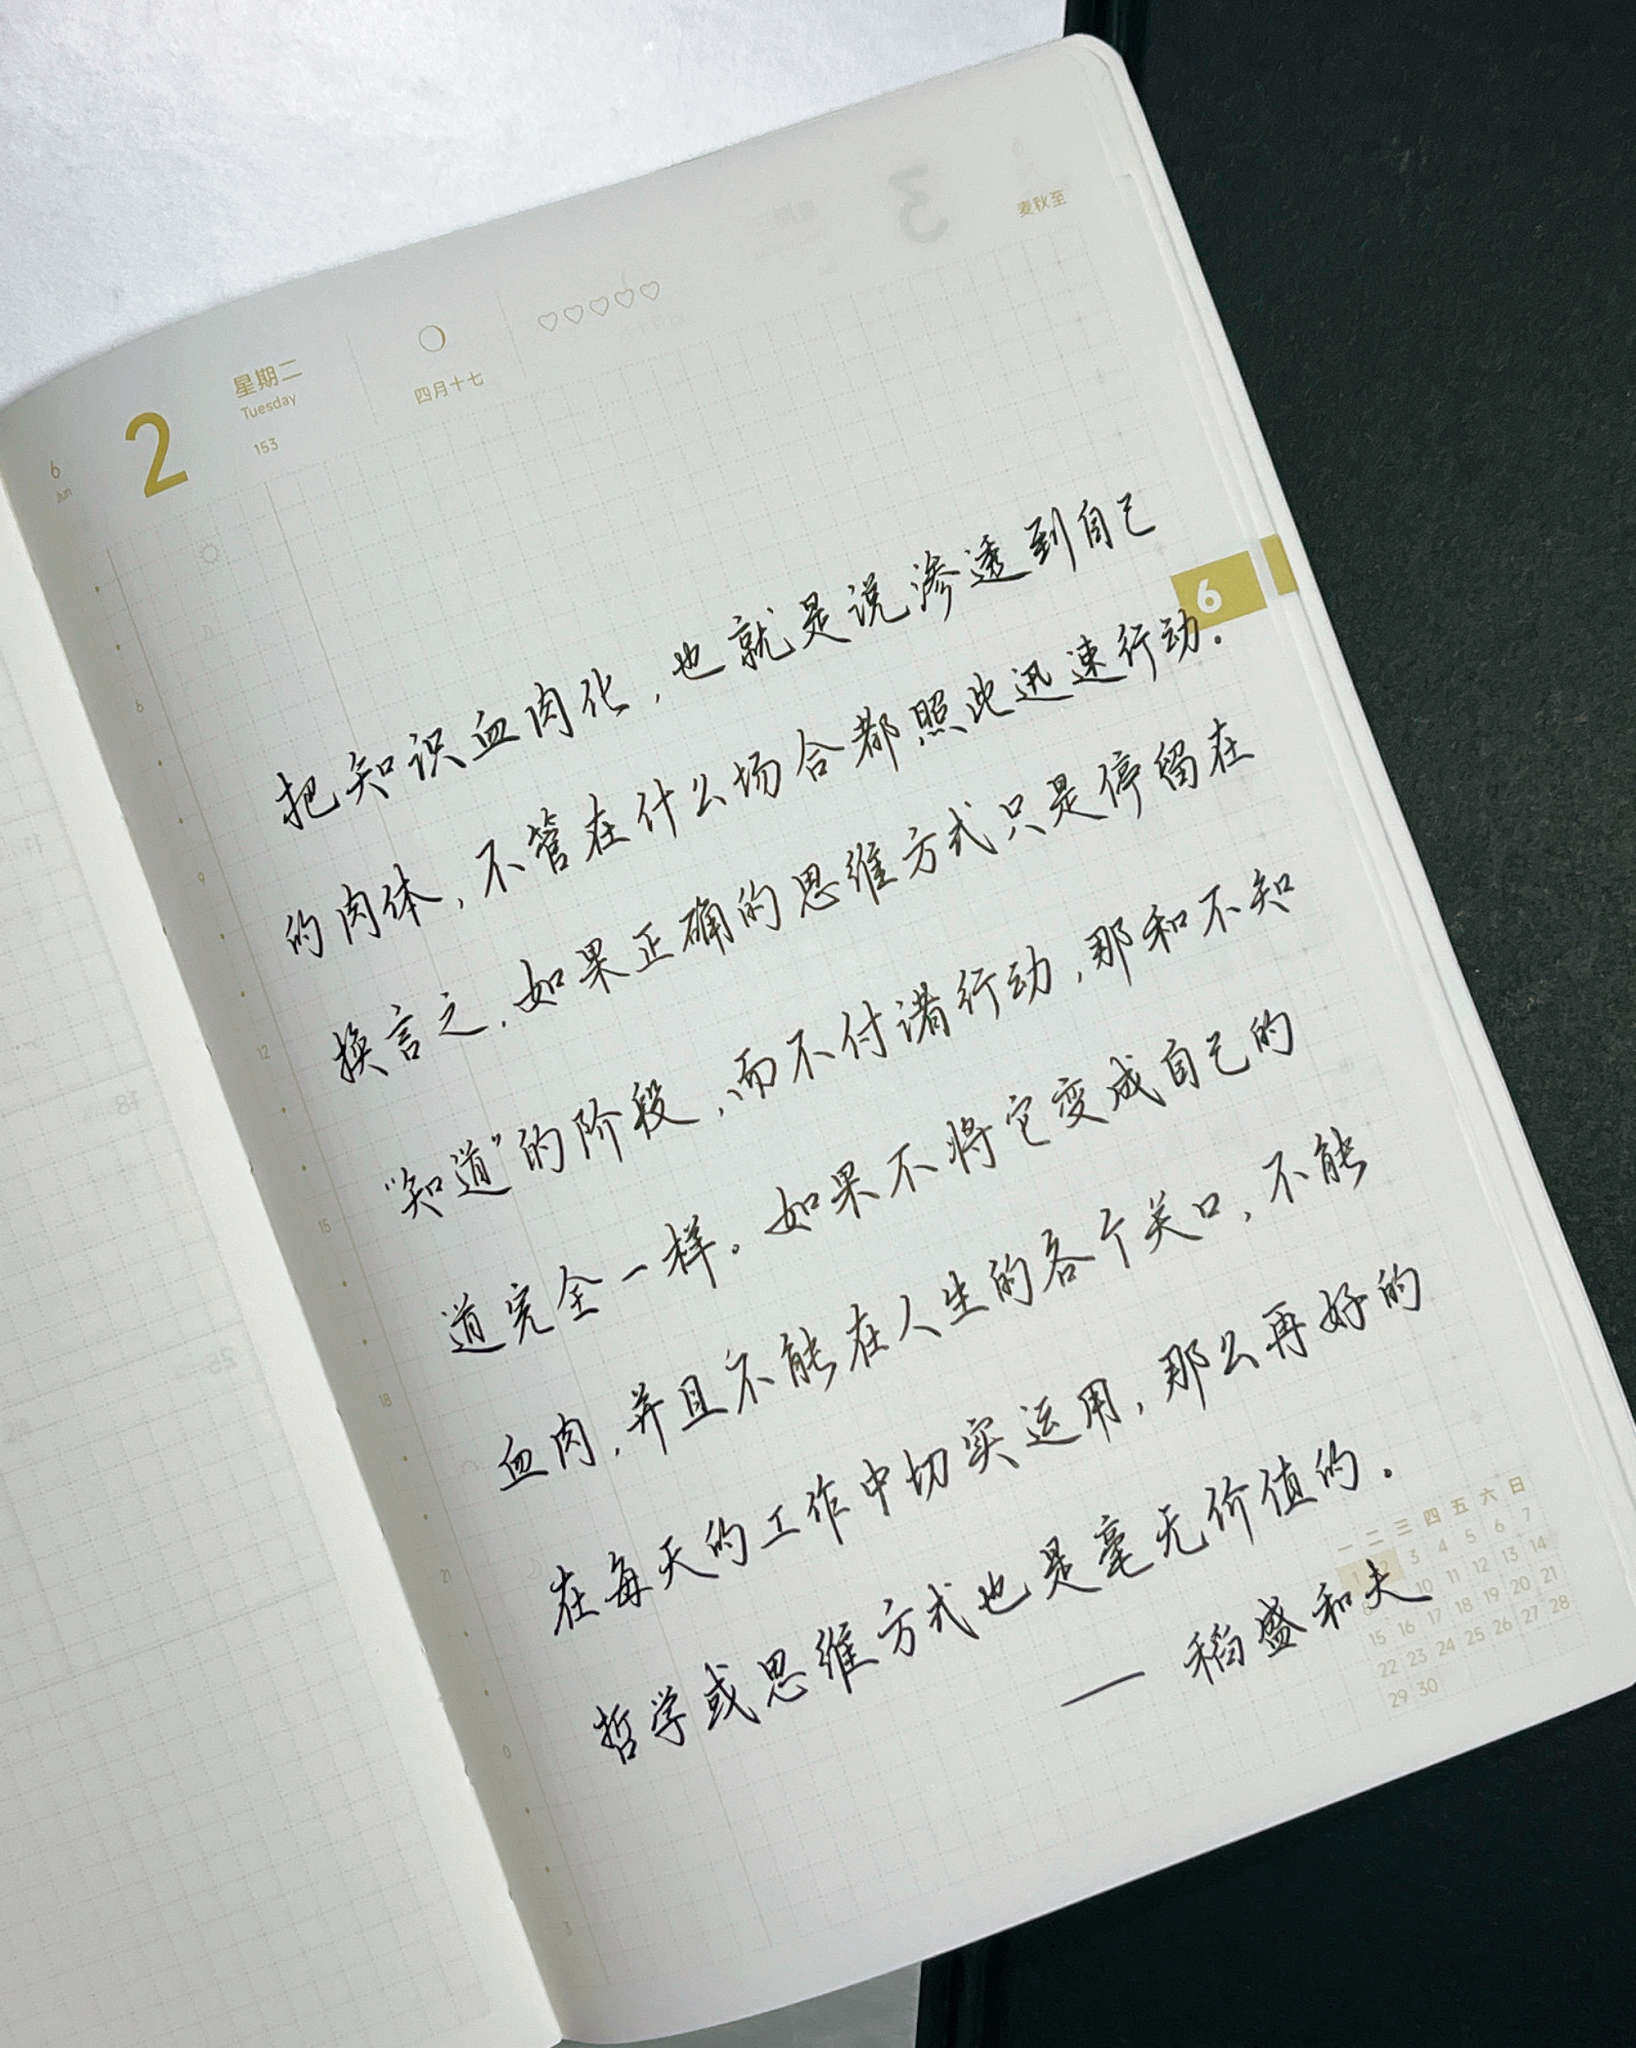 麦秋至
♡♡♡♡♡
星期二
Tuesday
153
四月十七
6
Jun
2
6
把知识血肉化，也就是说渗透到自己
的肉体，不管在什么场合都照此迅速行动.
换言之，如果正确的思维方式只是停留在
“知道”的阶段，而不付诸行动，那和不知
道完全一样。如果不将它变成自己的
血肉，并且不能在人生的各个关口，不能
在每天的工作中切实运用，那么再好的
哲学或思维方式也是毫无价值的.
—— 稻盛和夫
6
9
12
15
18
21
0
3
一 二 三 四 五 六 日
1 2 3 4 5 6 7
10 11 12 13 14
15 16 17 18 19 20 21
22 23 24 25 26 27 28
29 30